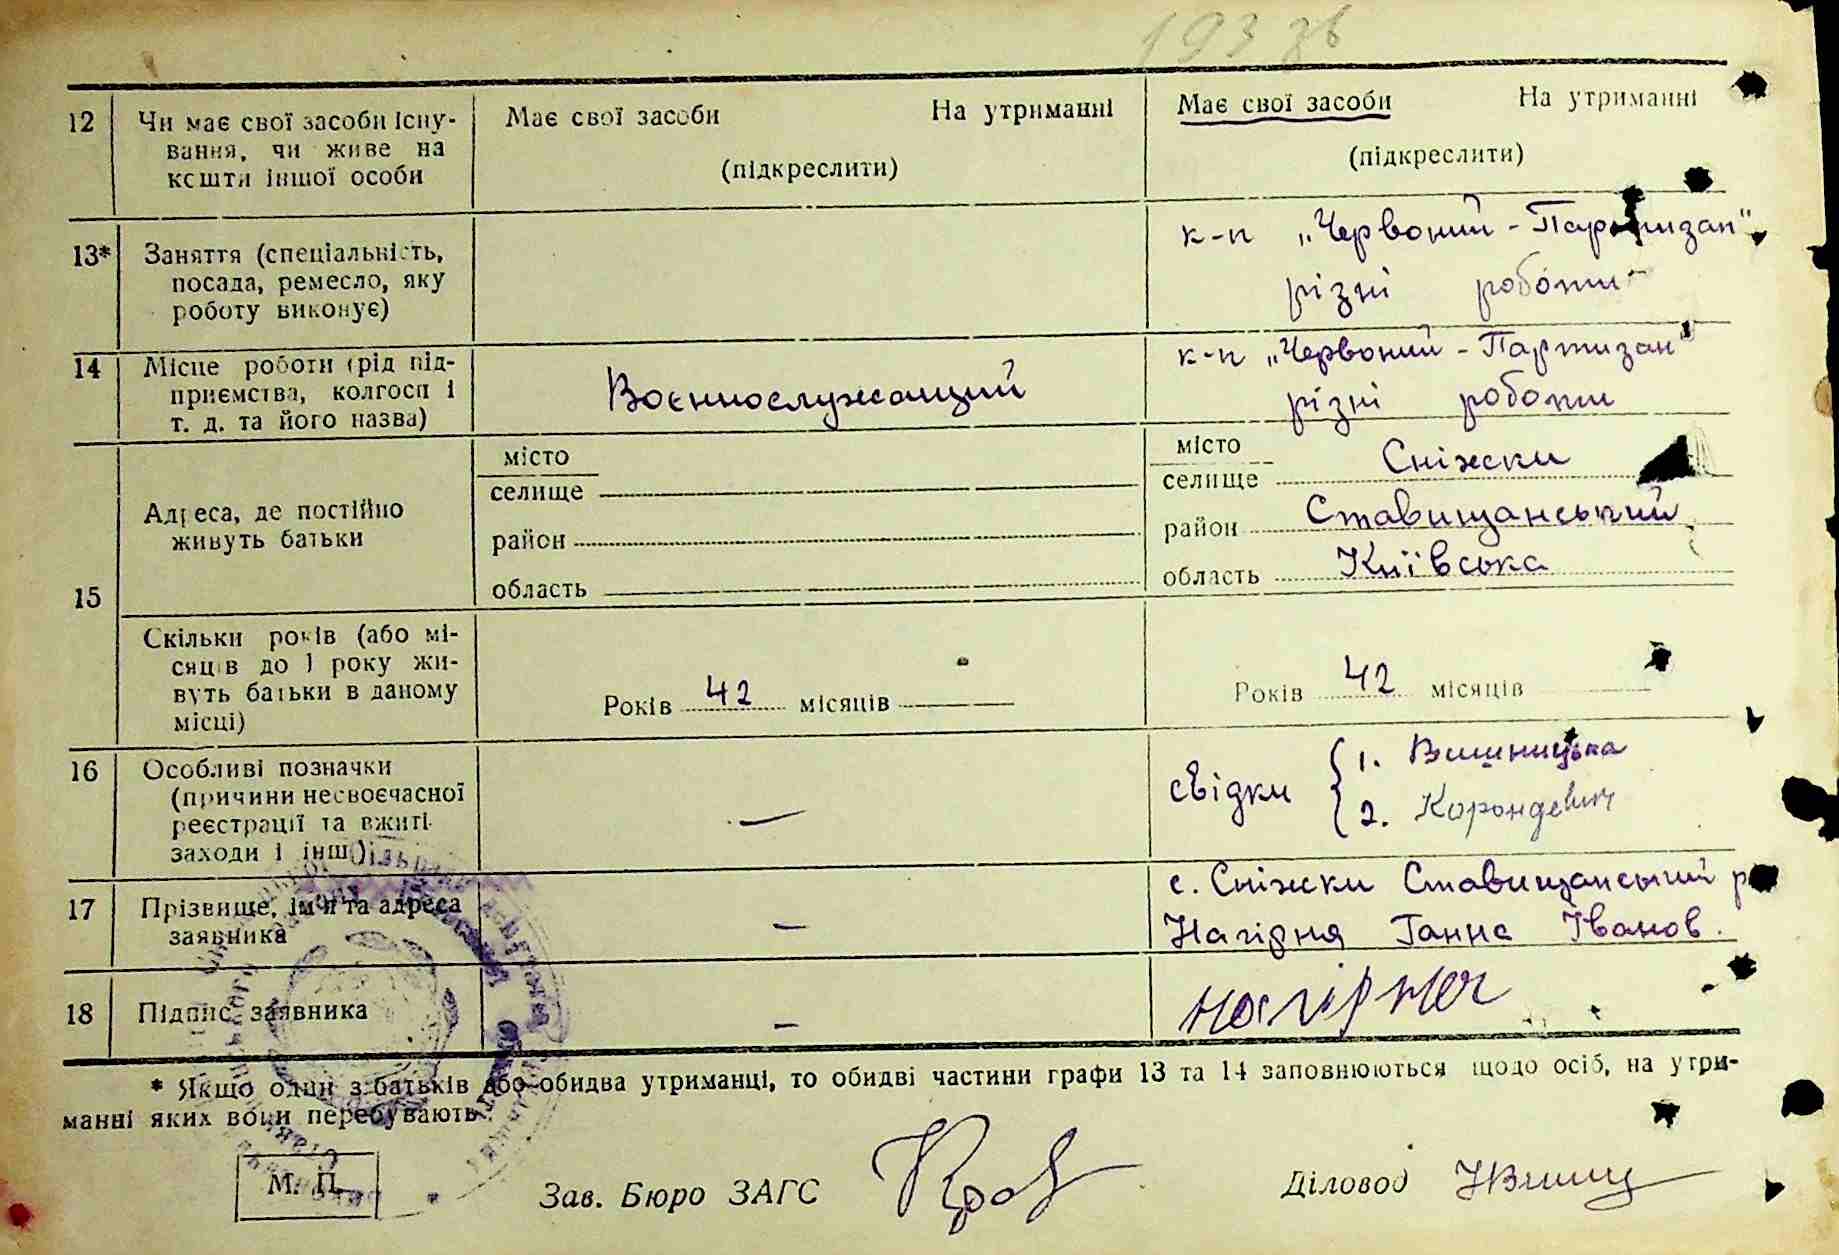 193 зв
12 Чи має свої засоби існу- Має свої засоби На утриманні Має свої засоби На утриманні
вання, чи живе на (підкреслити) (підкреслити)
кошти іншої особи
13* Заняття (спеціальність, к-п „Червоний - Партизан"
посада, ремесло, яку різні роботи
роботу виконує)
14 Місце роботи (рід під- Воєннослужащий к-п „Червоний - Партизан"
приємства, колгосп і різні роботи
т. д. та його назва)
15 Адреса, де постійно живуть батьки
місто місто
селище селище Сніжки
район район Ставищанський
область область Київська
Скільки років (або мі-
сяців до 1 року жи-
вуть батьки в даному Років 42 місяців — Років 42 місяців
місці)
16 Особливі позначки — свідки 1. Вишницька
(причини несвоєчасної 2.
реєстрації та вжиті
заходи і інш.)
17 Прізвище, ім'я та адреса — с. Сніжки Ставищанський р
заявника Нагірня Ганна Іванов.
18 Підпис заявника — Нагірна
* Якщо один з батьків або обидва утриманці, то обидві частини графи 13 та 14 заповнюються щодо осіб, на утри-
манні яких вони перебувають.
М. П. Зав. Бюро ЗАГС Діловод